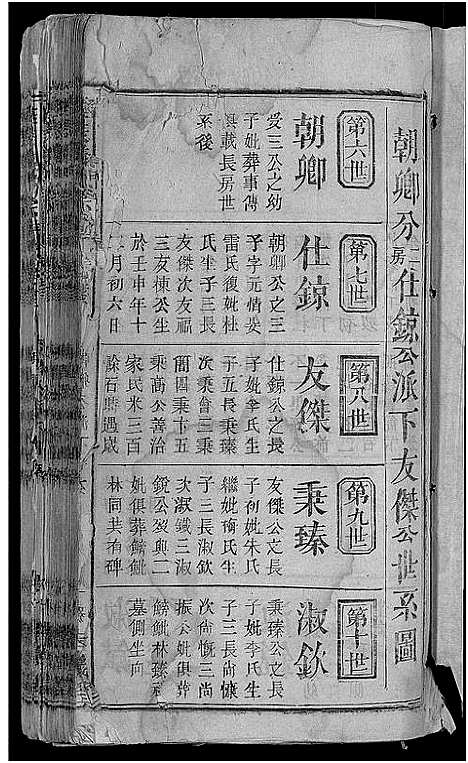 朝卿分二房仕鍄公派下友傑公世系圖
第六世
朝卿
受三公之幼
子妣葬事傳
俱載長房世
系後
第七世
仕鍄
朝卿公之三
子字元情娶
雷氏復妣杜
氏生子三長
友傑次友福
三友棟公生
於壬申年十
二月初六日
第八世
友傑
仕鍄公之長
子妣李氏生
子五長秉臻
次秉曾三秉
簡四秉十五
秉高公善治
家民米三百
餘石時遇咸
第九世
秉臻
友傑公文長
子初妣朱氏
繼妣衛氏生
子三長淑欽
次淑鐵三淑
鏡公葵與二
妣俱葬鯔鮘
林同共有碑
第十世
淑欽
秉臻公文長
子妣李氏生
子三長尚慷
次尚慨三尚
振公妣俱葬
林臻
墓側坐向